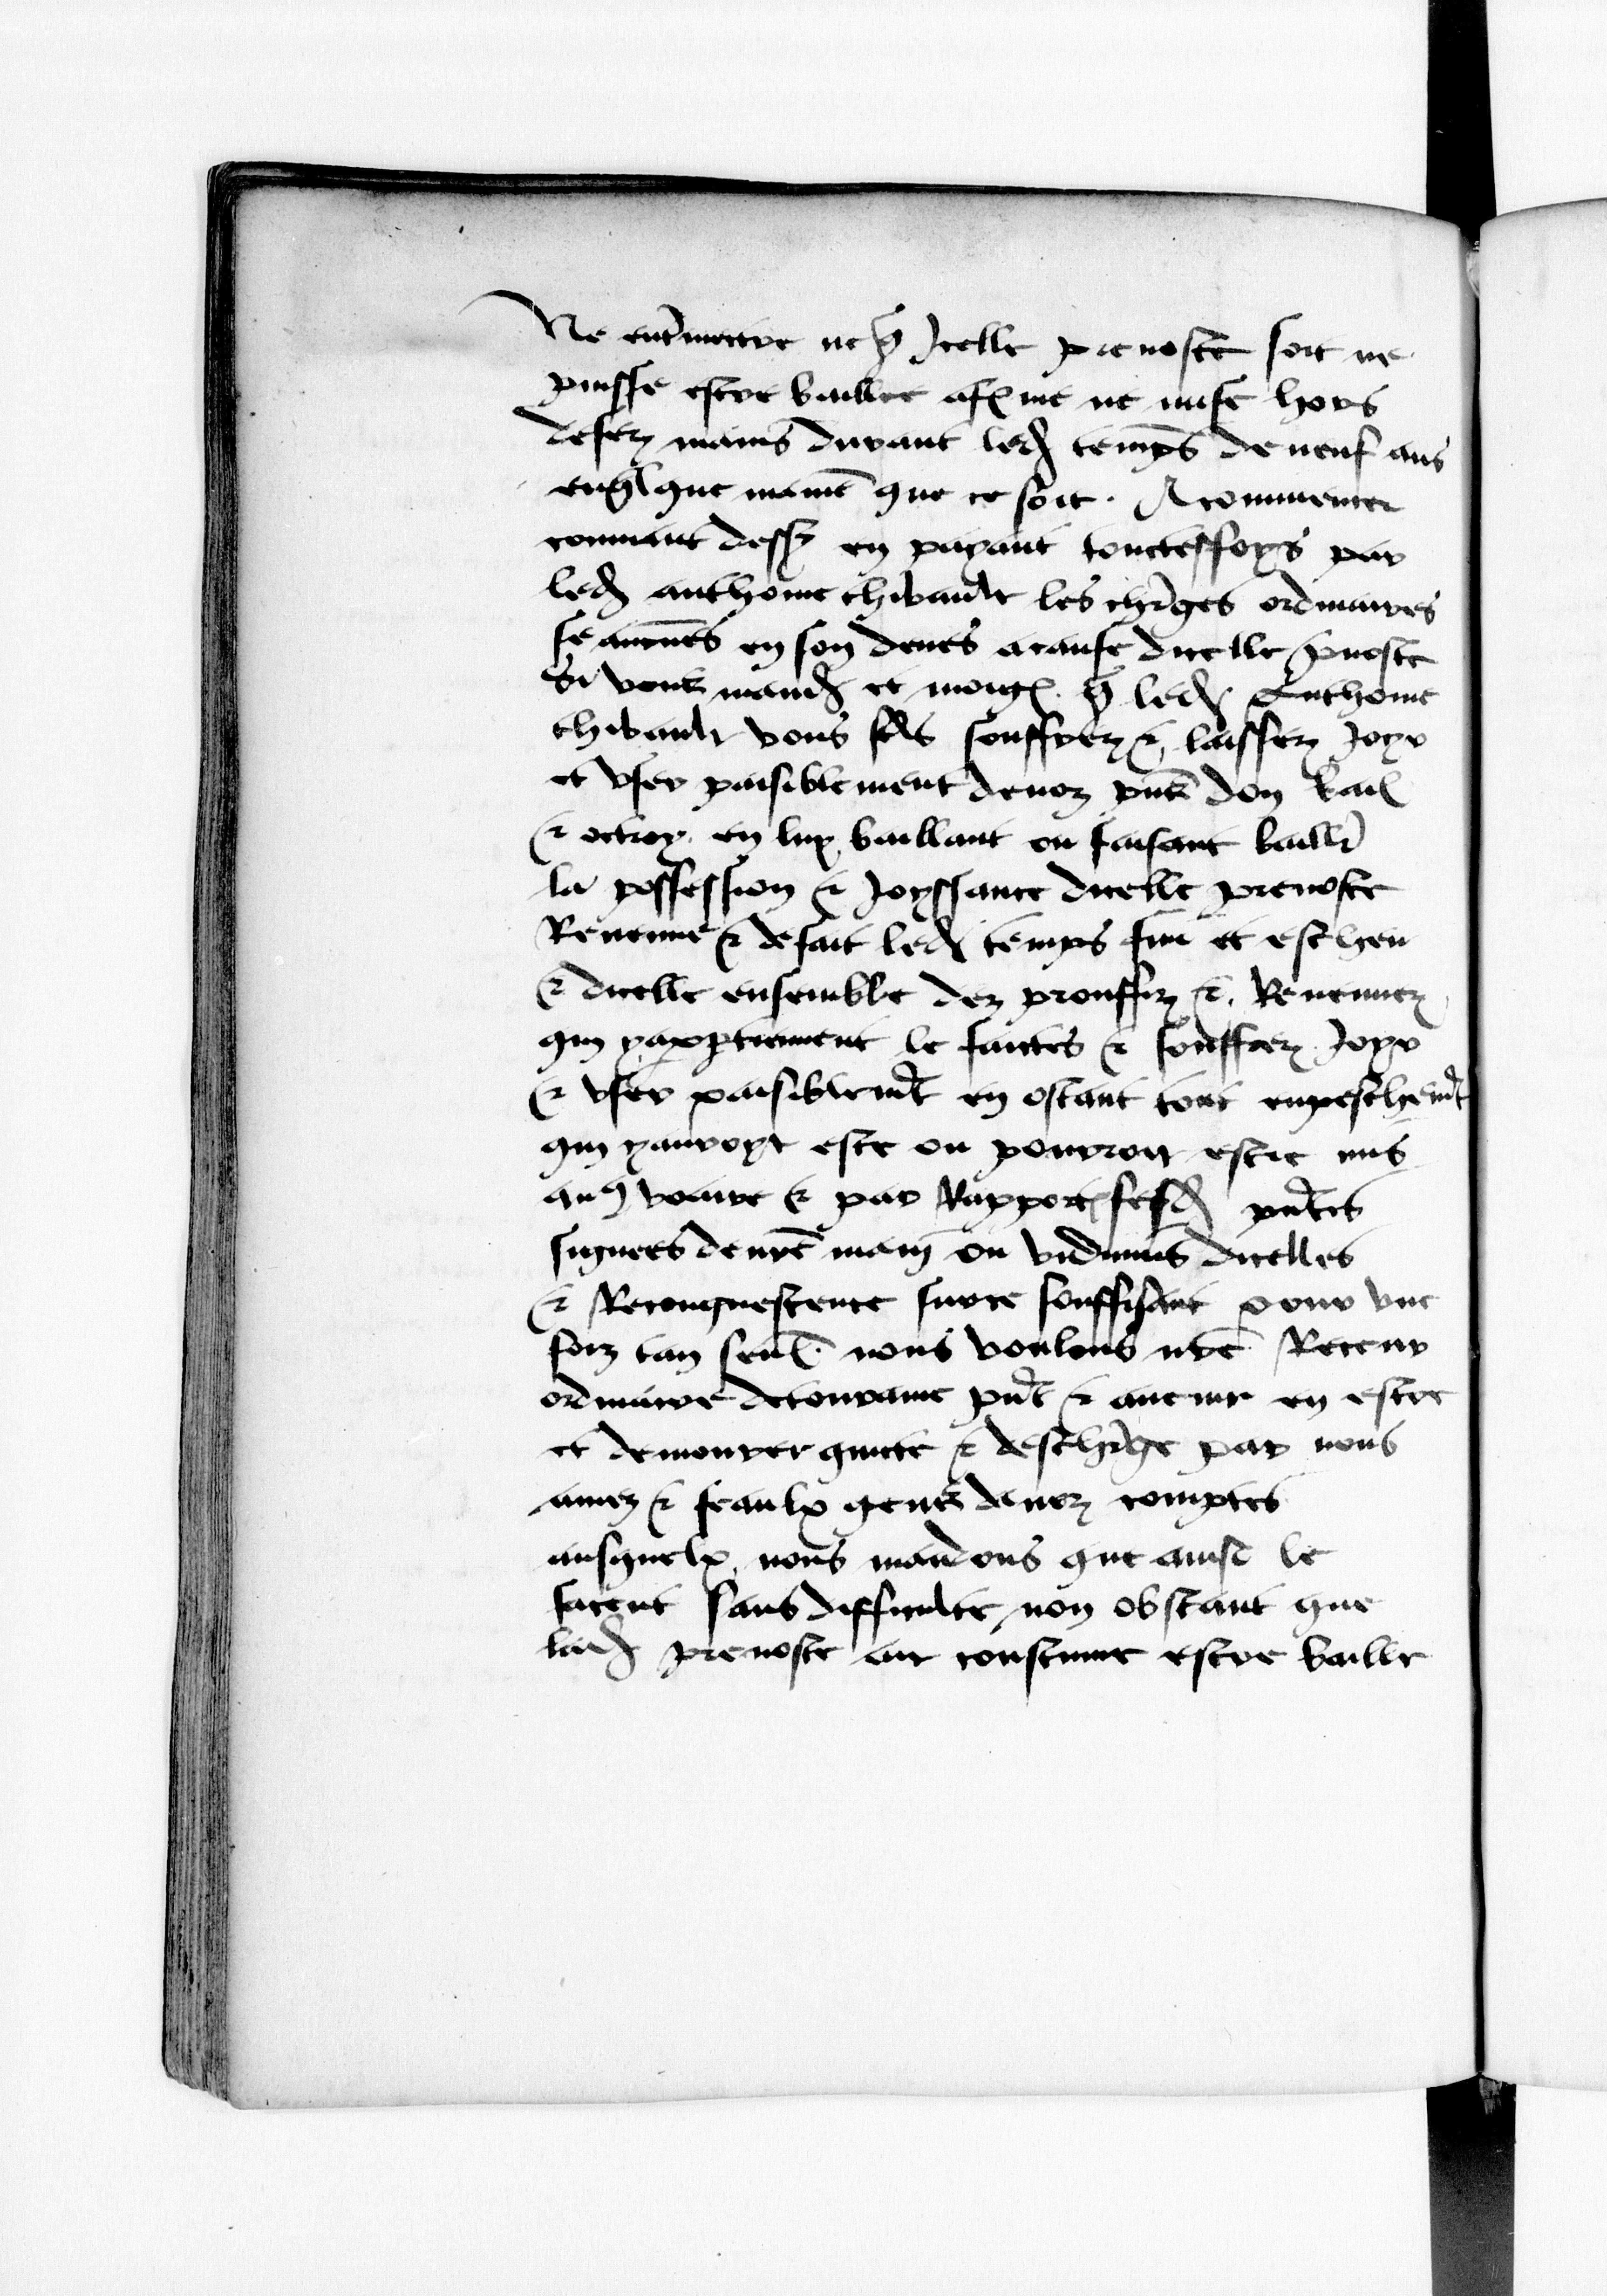 Ne entremettre ne q̃ Icelle prevoste soit ne
puisse estre baillee afẽme ne mise hors
desez mains durant led temps de neuf ans
enq̃lque maniẽ que ce soit. A commencer
commant dessꝰ en payant touctesfoys par
led anthoine thibault les chr̃ges ordinaires
se aucũes en son deues acause dicelle p̃voste
Si vous mand et q̃ led Anthoine
thibault vous souffrez & laissez Joyr
et user paisiblement denoz pñs don bail
& octroy en luy baillant ou faisant bailler
la possession & Joyssance dicelle prevoste
Revenue & defait led temps fini et escheu
& dicelle ensemble dez prouffiz & Revenuez
qui yappartiennent le faictes & souffrez Joyr
& user paisiblemt en ostant tout enpeschemt
qui yauroyt este ou pourroit estre mis
au 9traire & par Rapportˢ sesd pñtes
signees denrẽ main ou vidimus dicelles
& Recongnescence surce souffisant pour une
foiz tan seuł nous voulons nrẽ Receur
ordinaire detouraine pñt & avenir en estre
et demourer quicte & deschr̃ge par nous
amez & feaulx gens denoz comptes
ausquelx nous mandons que ainsi le
facent sans difficulte non obstant que
lad prevoste ait coustume estre baille